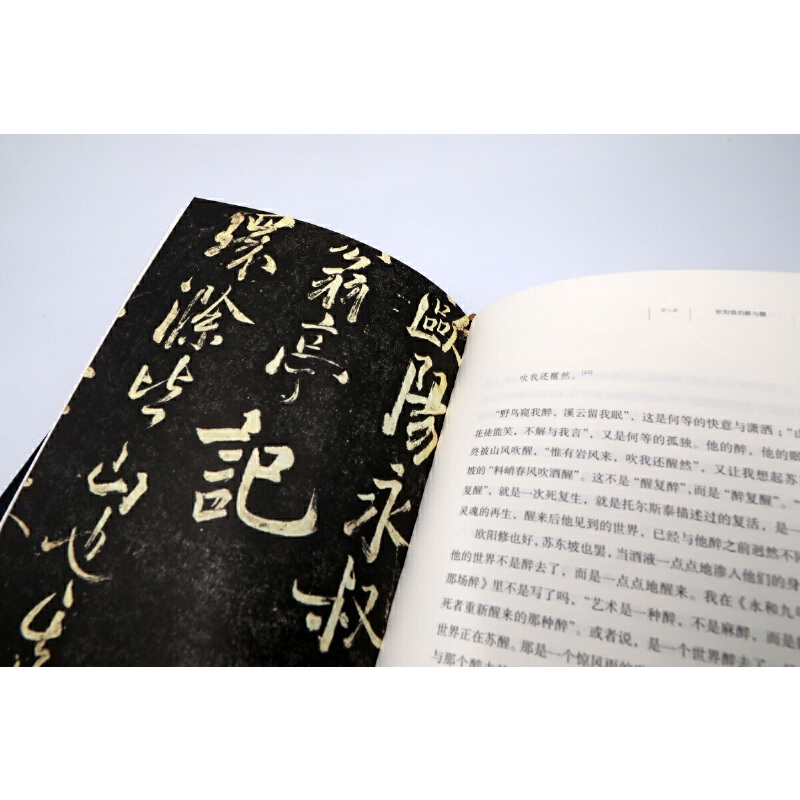 歐陽永叔
翁亭記
環滁皆山也
欧阳修的醉与醒
吹我还醒然。[22]
“野鸟窥我醉，溪云留我眠”，这是何等的快意与潇洒；“山
花徒能笑，不解与我言”，又是何等的孤独。他的醉，他的眠
终被山风吹醒，“惟有岩风来，吹我还醒然”，又让我想起苏
坡的“料峭春风吹酒醒”。这不是“醒复醉”，而是“醉复醒”。“
复醒”，就是一次死复生，就是托尔斯泰描述过的复活，是一
灵魂的再生，醒来后他见到的世界，已经与他醉之前迥然不同
欧阳修也好、苏东坡也罢，当酒液一点点地渗入他们的身
他的世界不是醉去了，而是一点点地醒来。我在《永和九年
那场醉》里不是写了吗，“艺术是一种醉，不是麻醉，而是能
死者重新醒来的那种醉”。或者说，是一个世界醉去了，
世界正在苏醒。那是一个惊风雨的
与那个醉